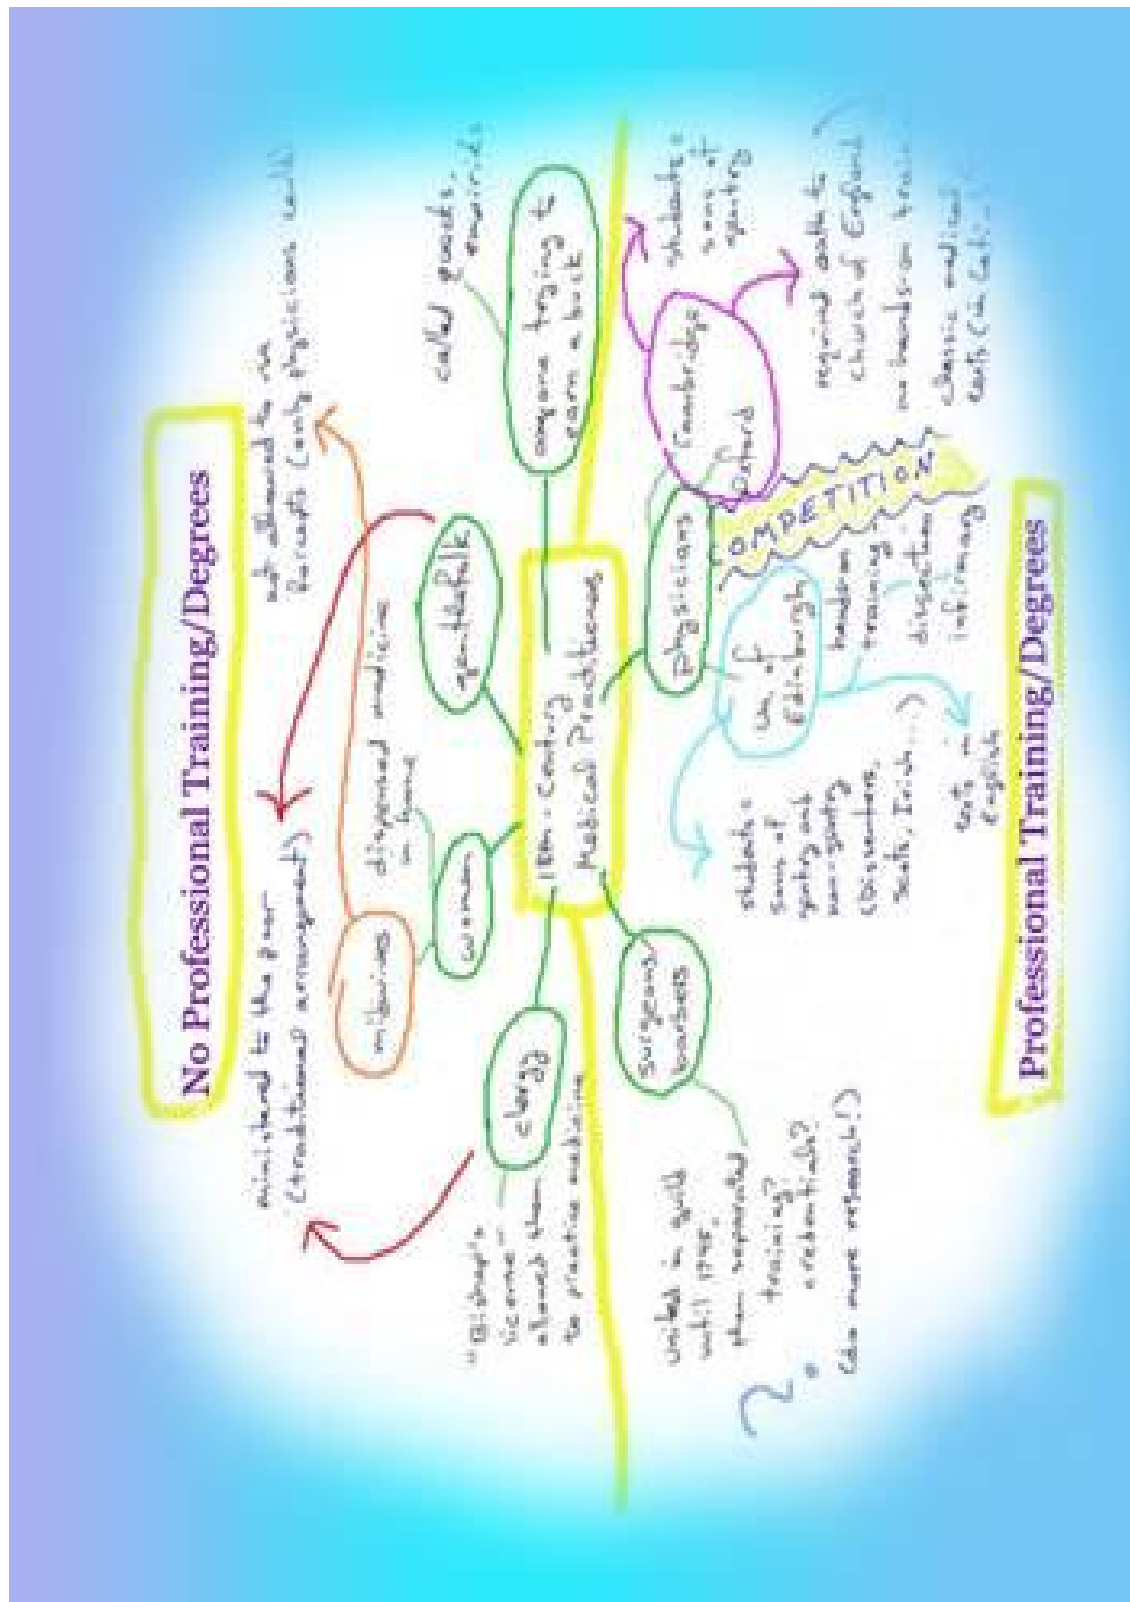 No Professional Training/Degrees
ministered to the poor
(traditional arrangement)
not allowed to use
forceps (only physicians could)
midwives
dispensed medicine
in home
women
gentlefolk
called quacks,
empirics
anyone trying to
earn a buck
clergy
"Bishop's
license"
allowed them
to practice medicine
18th-Century
Medical Practitioners
surgeons
barbers
united in guild
until 1745,
then separated
training?
credentials?
(do more research!)
?
physicians
Cambridge
Oxford
students =
sons of
gentry
required oath to
Church of England
no hands-on
classic medical
texts (in
COMPETITION
U. of
Edinburgh
hands on
training
dissection
infirmary
students =
sons of
gentry and
non-gentry
(Dissenters,
Scots, Irish...)
texts in
english
Professional Training/Degrees